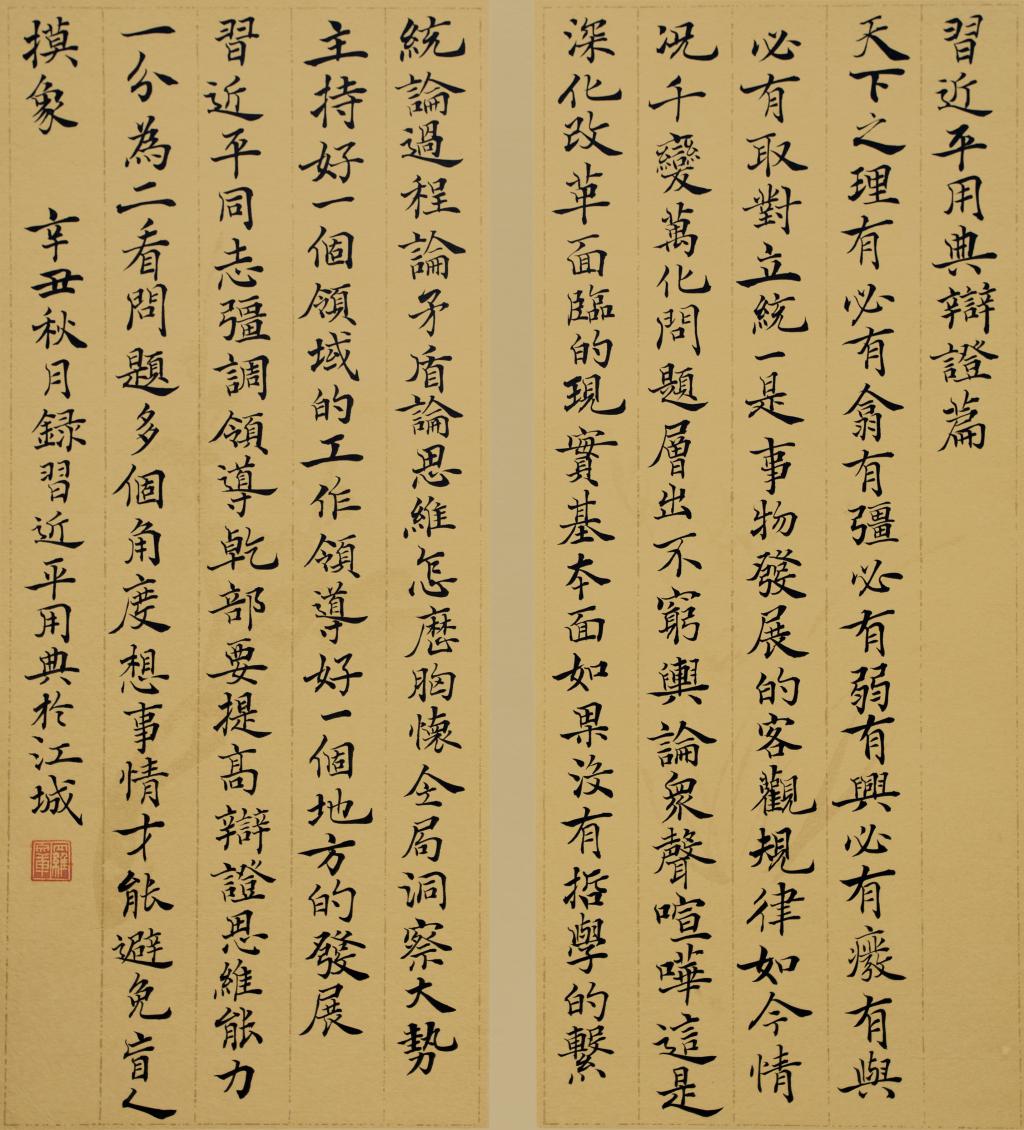 習近平用典辯證篇
天下之理有必有翕有彊必有弱有興必有癈有與
必有取對立統一是事物發展的客觀規律如今情
况千變萬化問題層出不窮輿論衆聲喧嘩這是
深化改革面臨的現實基本面如果没有哲學的繫
統論過程論矛盾論思維怎麽胸懷全局洞察大勢
主持好一個領域的工作領導好一個地方的發展
習近平同志彊調領導乾部要提高辯證思維能力
一分為二看問題多個角度想事情才能避免盲人
摸象 辛丑秋月録習近平用典於江城